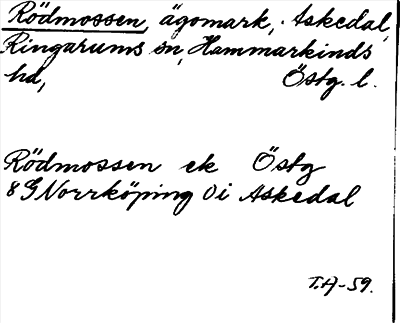 Rödmossen, ägomark, Askedal,
Ringarums sn, Hammarkinds
hd, Östg. l.
Rödmossen ek Östg
8 G Norrköping 0i Askedal
T.A-59.